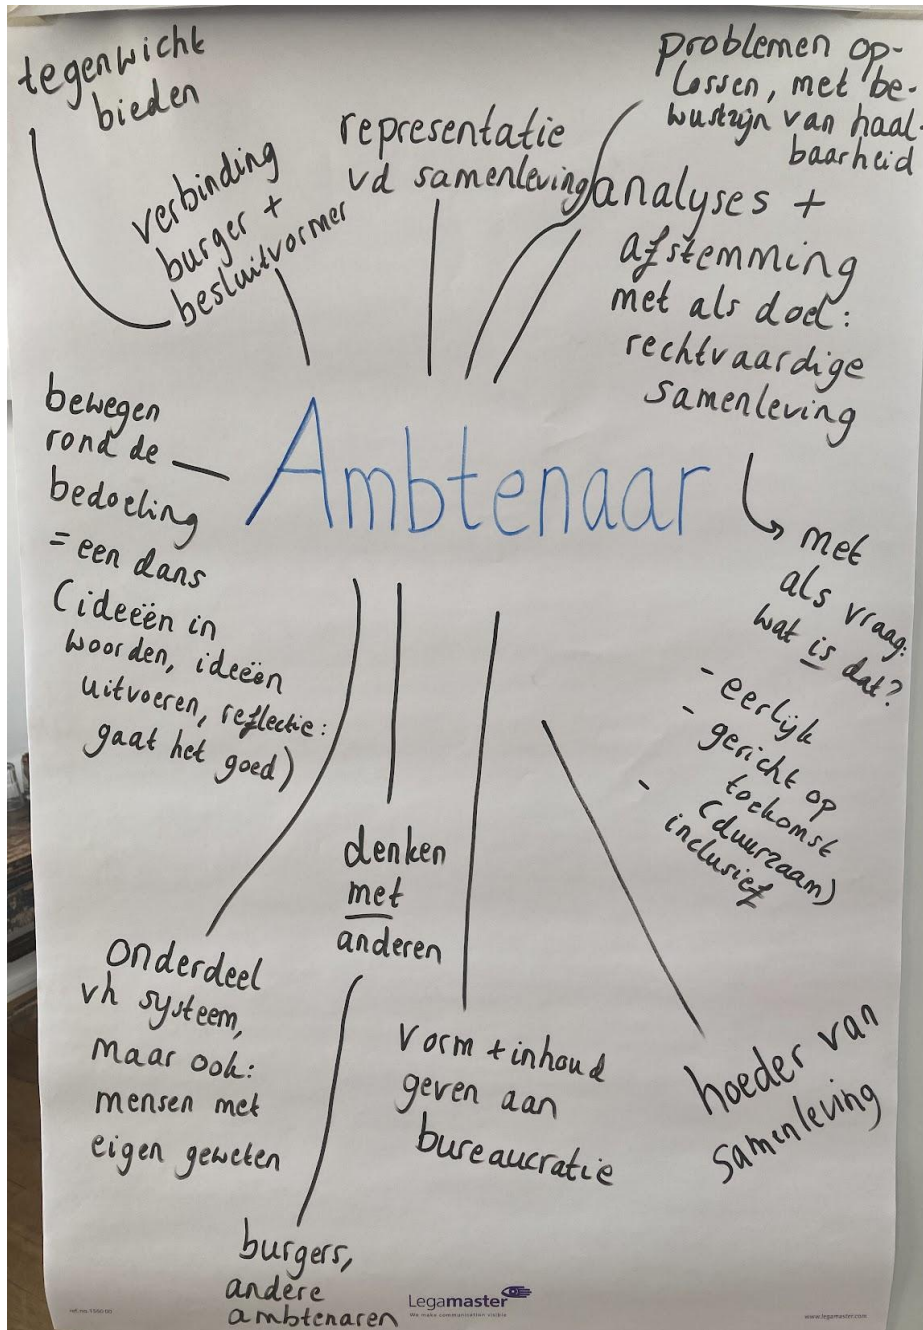 tegenwicht
bieden
verbinding
burger +
besluitvormer
representatie
vd samenleving
problemen op-
lossen, met be-
wustzijn van haal-
baarheid
analyses +
afstemming
met als doel:
rechtvaardige
samenleving
met
als vraag:
wat is dat?
- eerlijk
- gericht op
toekomst
(duurzaam)
- inclusief
Ambtenaar
bewegen
rond de
bedoeling
= een dans
(ideeën in
woorden, ideeën
uitvoeren, reflectie:
gaat het goed)
onderdeel
vh systeem,
maar ook:
mensen met
eigen geweten
denken
met
anderen
burgers,
andere
ambtenaren
vorm + inhoud
geven aan
bureaucratie
hoeder van
samenleving
Legamaster
We make communication visible
www.legamaster.com